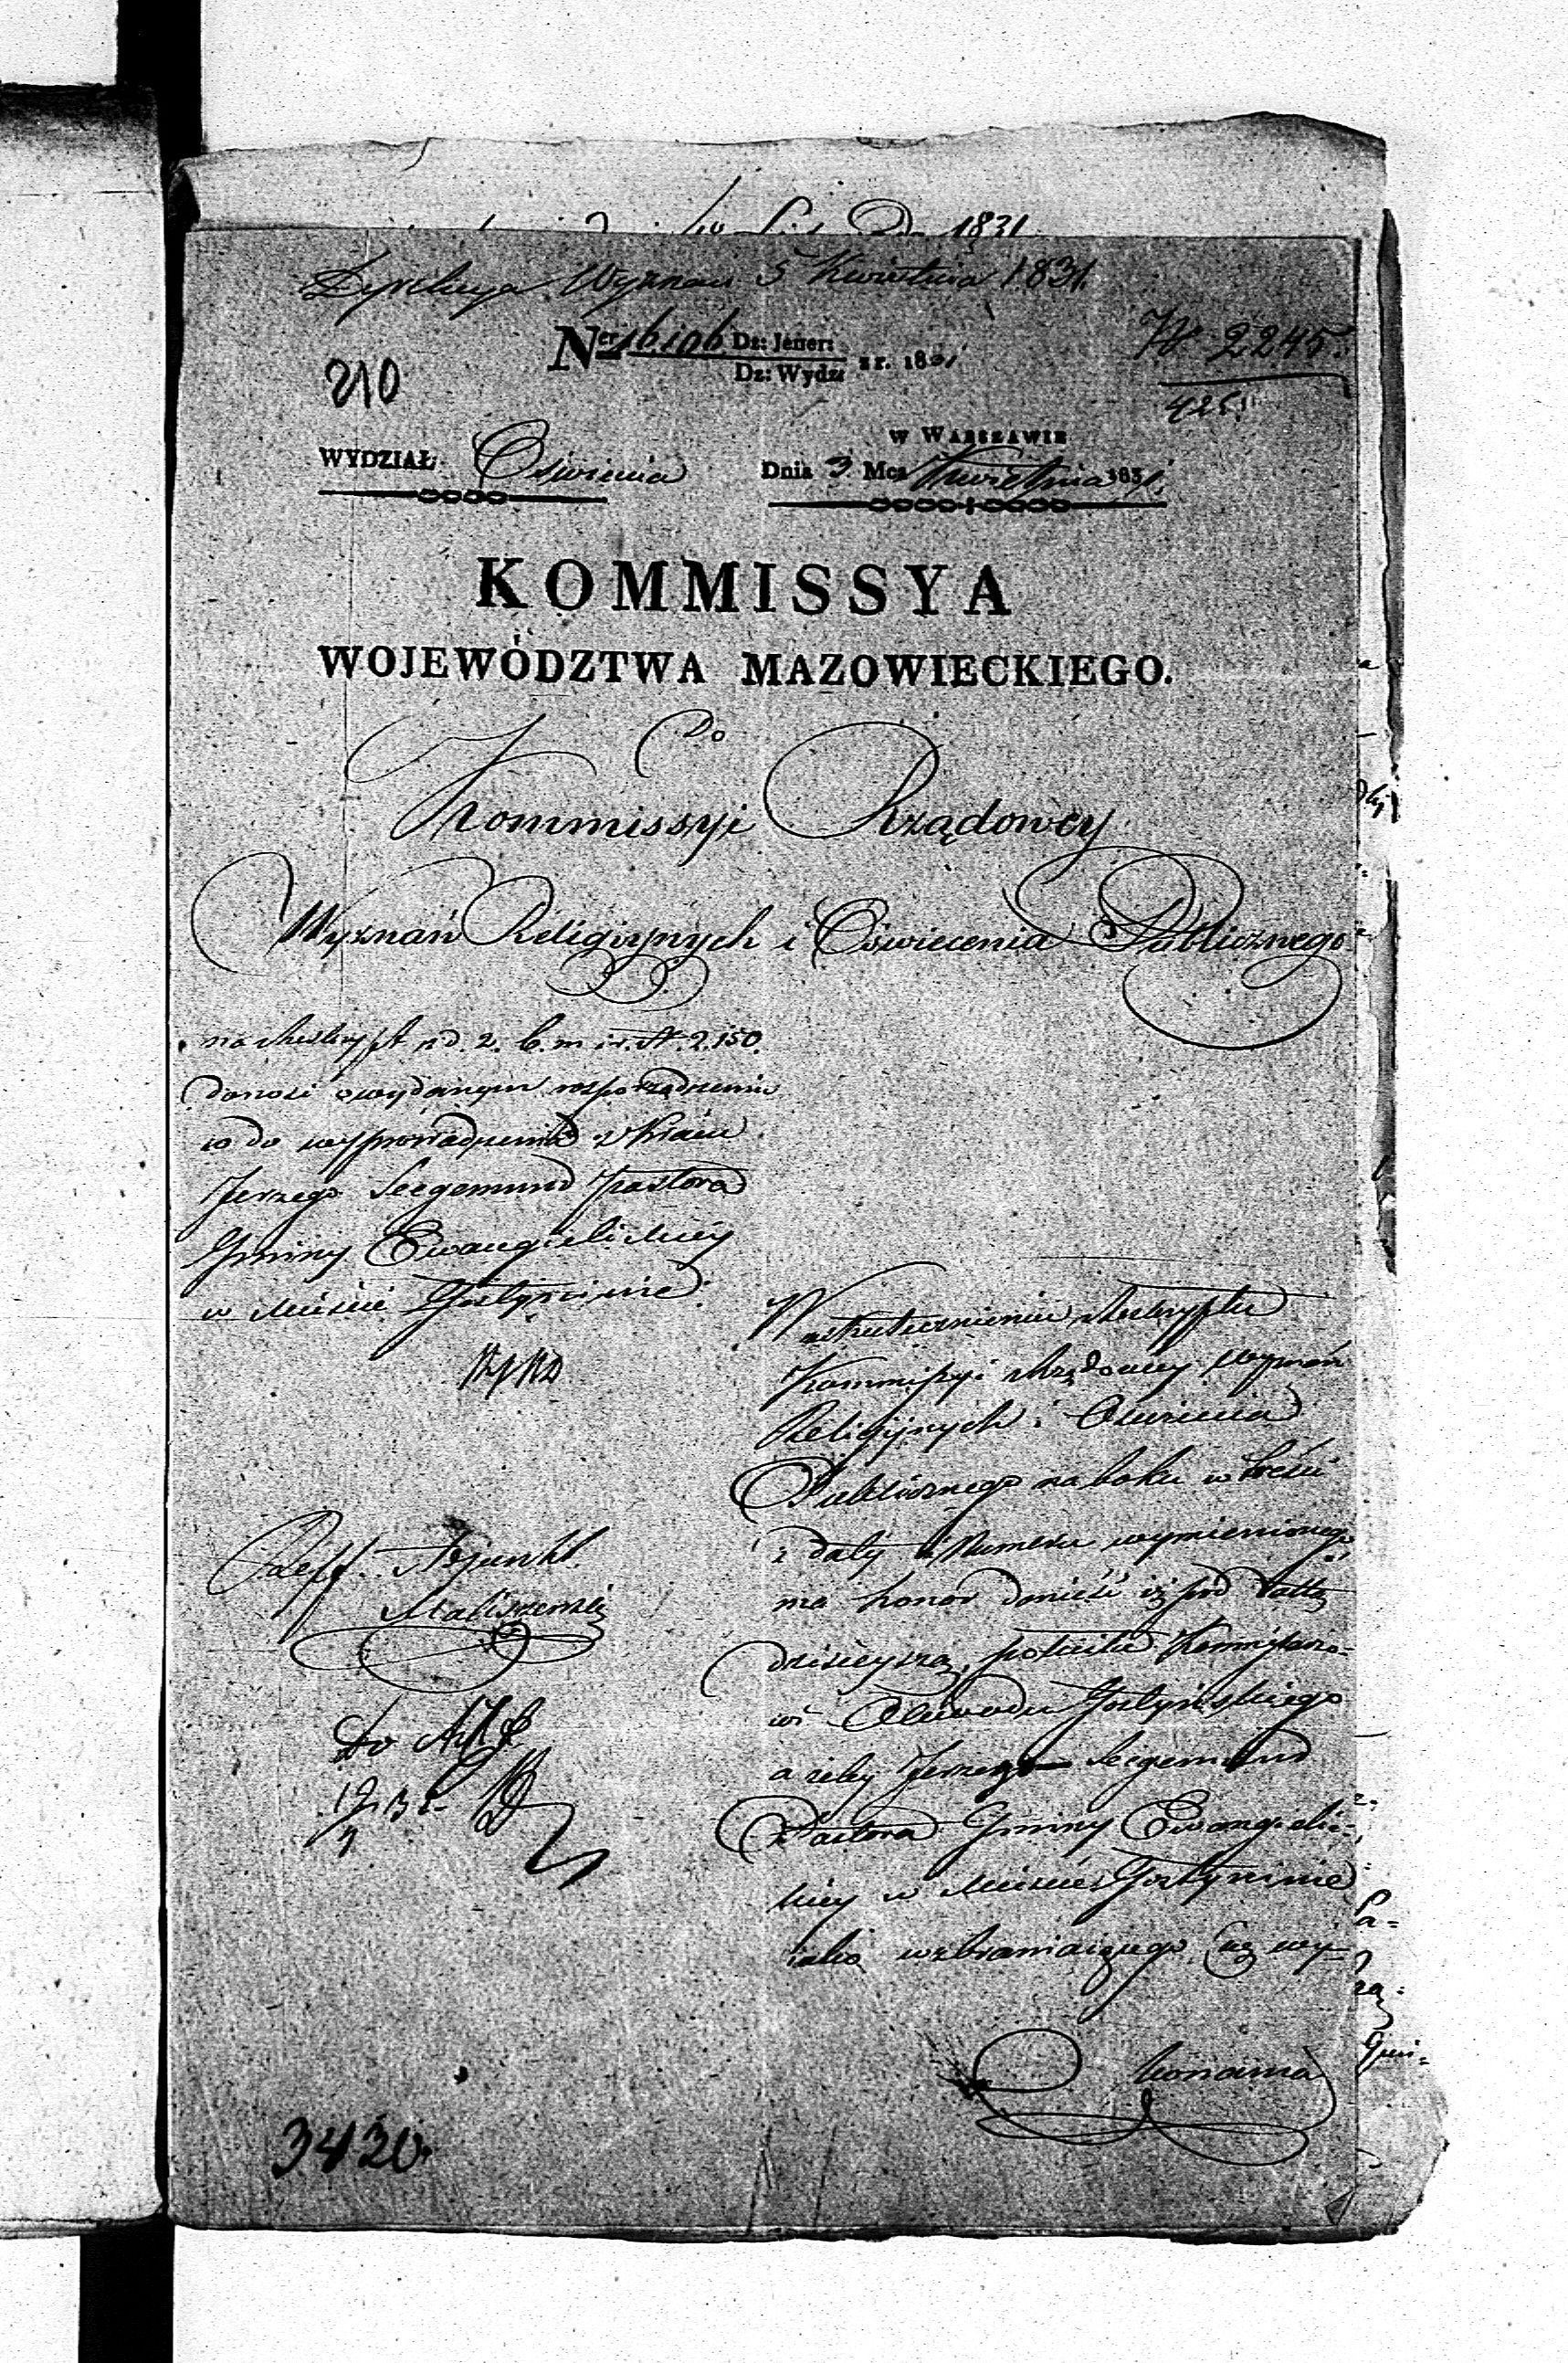 1831
Dyrekcya Wyznań 5 Kwietnia 1831.
Ner 16106 Dz: Jener:
Dz: Wydz: z r. 1831
W 2245.
210
WYDZIAŁ Oświecenia
w WARSZAWIE
Dnia 3 Mca Kwietnia 1831,
KOMMISSYA
WOJEWÓDZTWA MAZOWIECKIEGO.
Do
Kommissyi Rządowey
Wyznań Religiynych i Oświecenia Publicznego
na Reskrypt z d. 2. b. m. i r. N. 2.150.
donosi o wydanym rosporządzeniu
co do wyprowadzenia z Kraiu
Jerzego Seegemund Pastora
Gminy Ewangelickiey
w Mieście Gostyninie.
W uskutecznieniu Reskryptu
Kommissyi Rządowey Wyznań
Religijnych i Oświecenia
Publicznego na boku w treści
z daty i Numeru wymienionego,
ma honor donieść iż pod datą
dzisieyszą, poleciła Kommissarzo-
wi Obwodu Gostyńskiego
ażeby Jerzego Seegemund
Pastora Gminy Ewangelic-
kiey w Mieście Gostyninie
iako wzbraniaiącego się wy-
konania
Reff. Adjunkt.
Maliszewski
Do
3420.